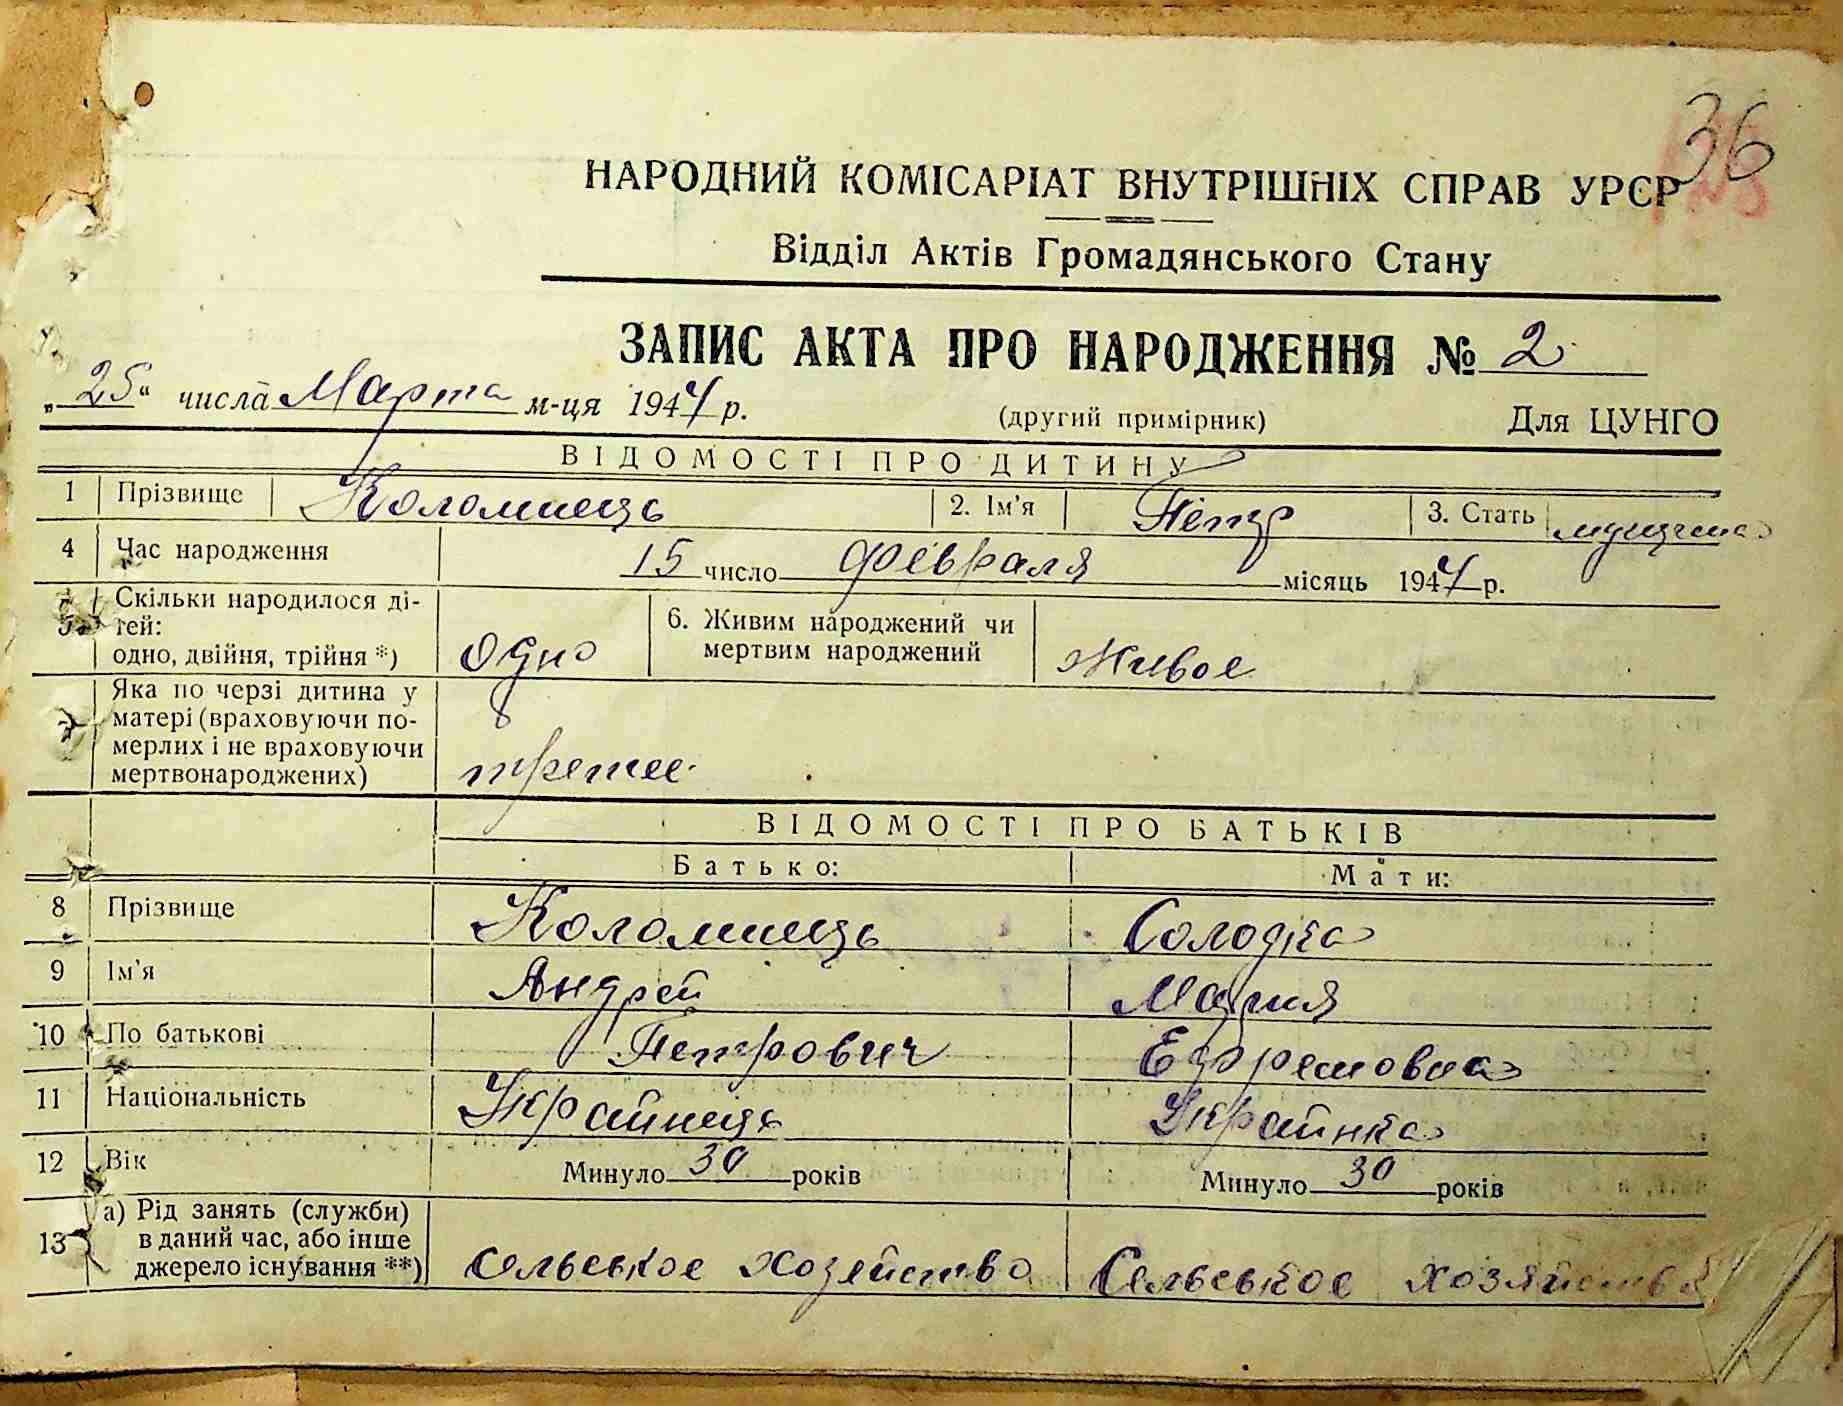 36
НАРОДНИЙ КОМІСАРІАТ ВНУТРІШНІХ СПРАВ УРСР
Відділ Актів Громадянського Стану
ЗАПИС АКТА ПРО НАРОДЖЕННЯ № 2
„25“ числа Марта м-ця 1947 р.
(другий примірник) Для ЦУНГО
ВІДОМОСТІ ПРО ДИТИНУ
1 Прізвище Коломиець 2. Ім'я Пётр 3. Стать мущина
4 Час народження 15 число февраля місяць 1947 р.
5 Скільки народилося ді-
тей:
одно, двійня, трійня *) одно
6. Живим народжений чи
мертвим народжений Живое
7 Яка по черзі дитина у
матері (враховуючи по-
мерлих і не враховуючи
мертвонароджених) третее
ВІДОМОСТІ ПРО БАТЬКІВ
Батько: Мати:
8 Прізвище Коломиець Солодка
9 Ім'я Андрей Мария
10 По батькові Петрович Ефремовна
11 Національність Украйнець Украйнка
12 Вік Минуло 30 років Минуло 30 років
13 а) Рід занять (служби)
в даний час, або інше
джерело існування **) Сельськое хозяйство Сельськое хозяйство